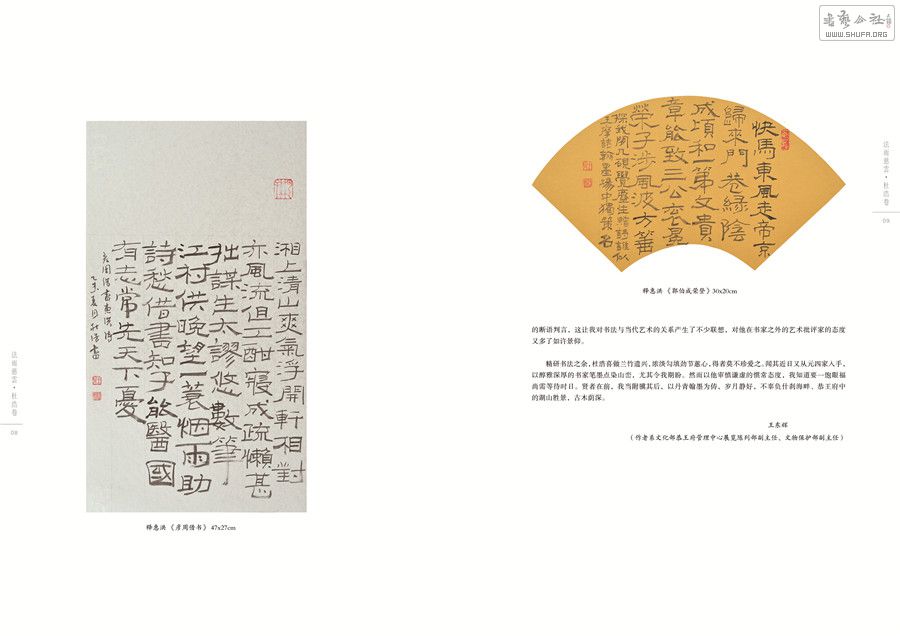 書藝公社
WWW.SHUFA.ORG
湘上清山爽氣浮開軒相對
亦風流但工酣寢成疏懶甚
拙謀生太謬悠數筆
江村供晚望一蓑烟雨助
詩愁借書知子能醫國
有志常先天下憂
彦周借書惠洪詩
乙未夏月杜浩書
释惠洪 《彦周借书》 47x27cm
法雨慈雲·杜浩卷
08
快馬東風走帝京
歸來門巷緑陰
成頃和一第文貴
章能致三公衮
榮子涉風波方
探我閑几硯覺塵生 詩誰似
王摩詰翰墨場中獨策名
释惠洪 《郭伯成荣登》30x20cm
的断语判言，这让我对书法与当代艺术的关系产生了不少联想，对他在书家之外的艺术批评家的态度
又多了如许景仰。
精研书法之余，杜浩喜做兰竹遣兴，浓淡勾填劲节蕙心，得者莫不珍爱之。闻其近日又从元四家入手，
以醇雅深厚的书家笔墨点染山峦，尤其令我期盼。然而以他审慎谦虚的惯常态度，我知道要一饱眼福
尚需等待时日。贤者在前，我当附骥其后，以丹青翰墨为俦，岁月静好，不辜负什刹海畔、恭王府中
的湖山胜景，古木荫深。
王东辉
（作者系文化部恭王府管理中心展览陈列部副主任、文物保护部副主任）
法雨慈雲·杜浩卷
09